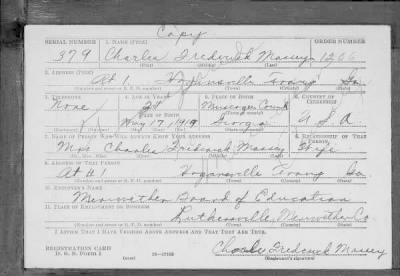 Copy
SERIAL NUMBER 1. NAME (Print) ORDER NUMBER
379 Charlie Frederick Massey 1206
(First) (Middle) (Last)
2. ADDRESS (Print)
Rt 1 Hogansville Troup Ga.
(Number and street or R. F. D. number) (Town) (County) (State)
3. TELEPHONE 4. AGE IN YEARS 5. PLACE OF BIRTH 6. COUNTRY OF CITIZENSHIP
None 21 Muscogee County
DATE OF BIRTH (Town or county)
May 17 1919 Georgia U. S. A.
7. NAME OF PERSON WHO WILL ALWAYS KNOW YOUR ADDRESS 8. RELATIONSHIP OF THAT PERSON
Mrs Charlie Fredrick Massey Wife
9. ADDRESS OF THAT PERSON
Rt # 1 Hogansville Troup Ga.
(Number and street or R. F. D. number) (Town) (County) (State)
10. EMPLOYER'S NAME
Meriwether Board of Education
11. PLACE OF EMPLOYMENT OR BUSINESS
Luthersville, Meriwether Co
(Number and street or R. F. D. number) (Town) (County) (State)
I AFFIRM THAT I HAVE VERIFIED ABOVE ANSWERS AND THAT THEY ARE TRUE.
REGISTRATION CARD
D. S. S. Form 1 (over) Charlie Fredrick Massey
(Registrant's signature)